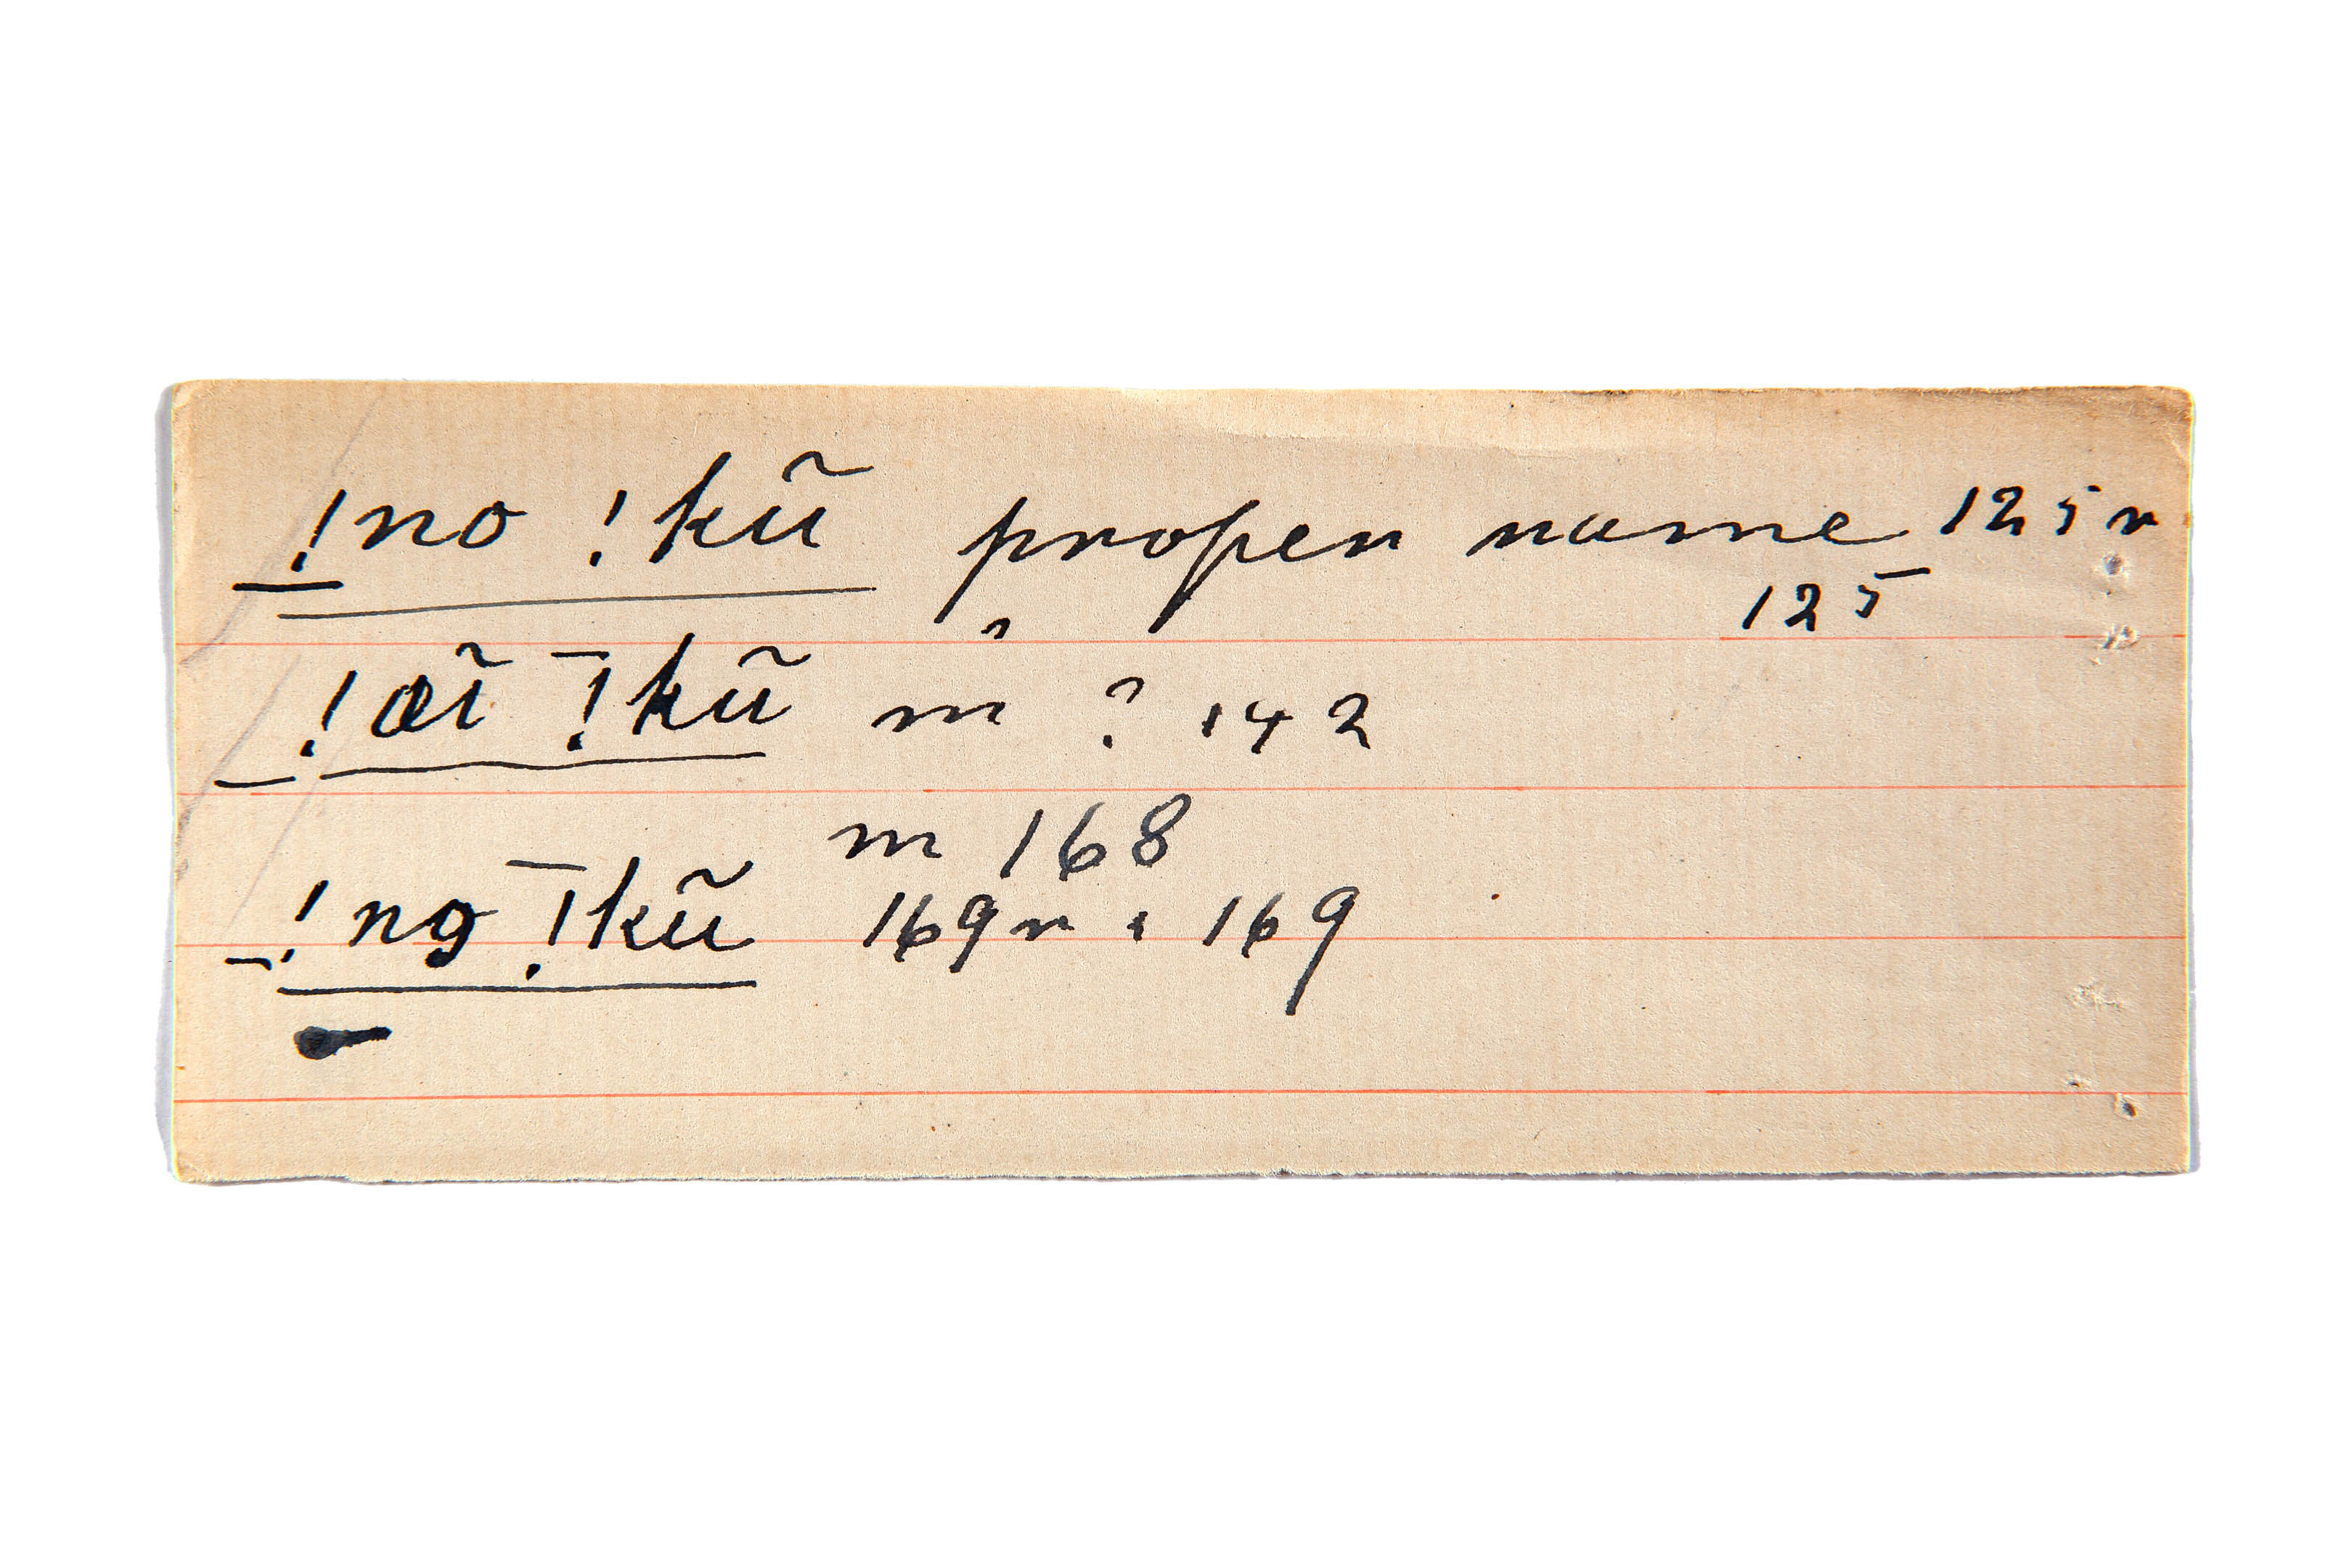 !no !kũ proper name 125 r
125
!õĩ !kũ m ? 142
m 168
!no !kũ 169 r . 169